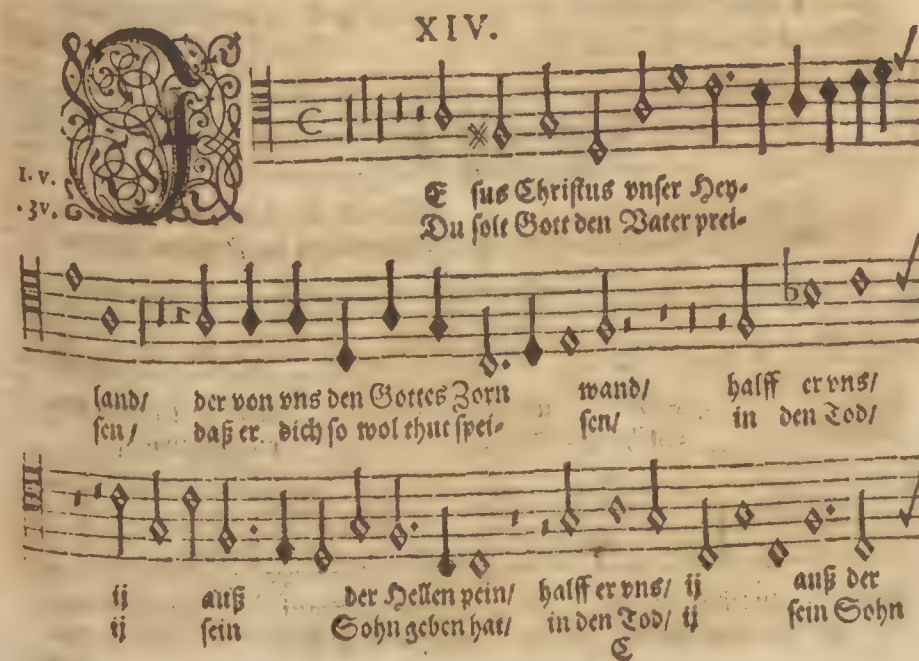 XIV.
I. v.
. 3v.
JE sus Christus vnser Hey-
Du solt Gott den Vater prei-
land/ der von vns den Gottes Zorn wand/ halff er vns/
sen/ daß er dich so wol thut spei- sen/ in den Tod/
ij auß der Hellen pein/ halff er vns/ ij auß der
ij sein Sohn geben hat/ in den Tod/ ij sein Sohn
C